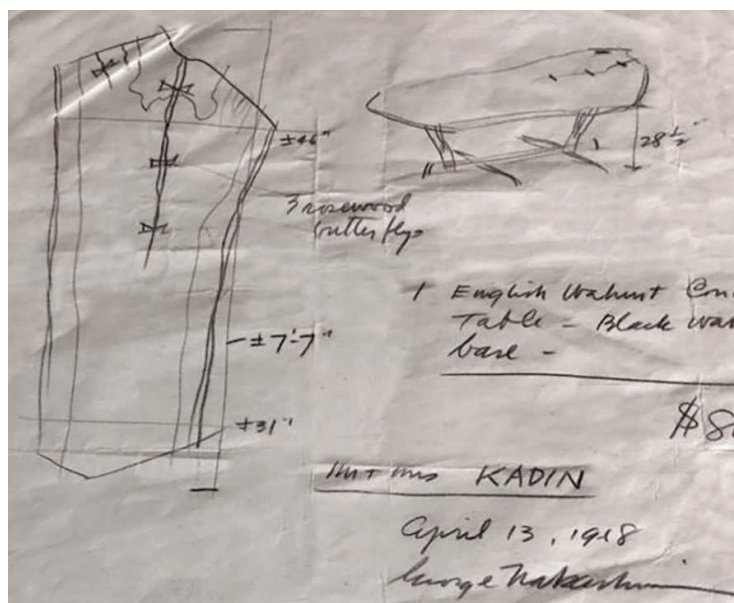 ±46"
28 1/2"
3 rosewood
butterflys
1 English Walnut Con
Table - Black wa
base -
±7'-7"
±31"
$8
Mr + Mrs KADIN
April 13, 1918
George Nakashima